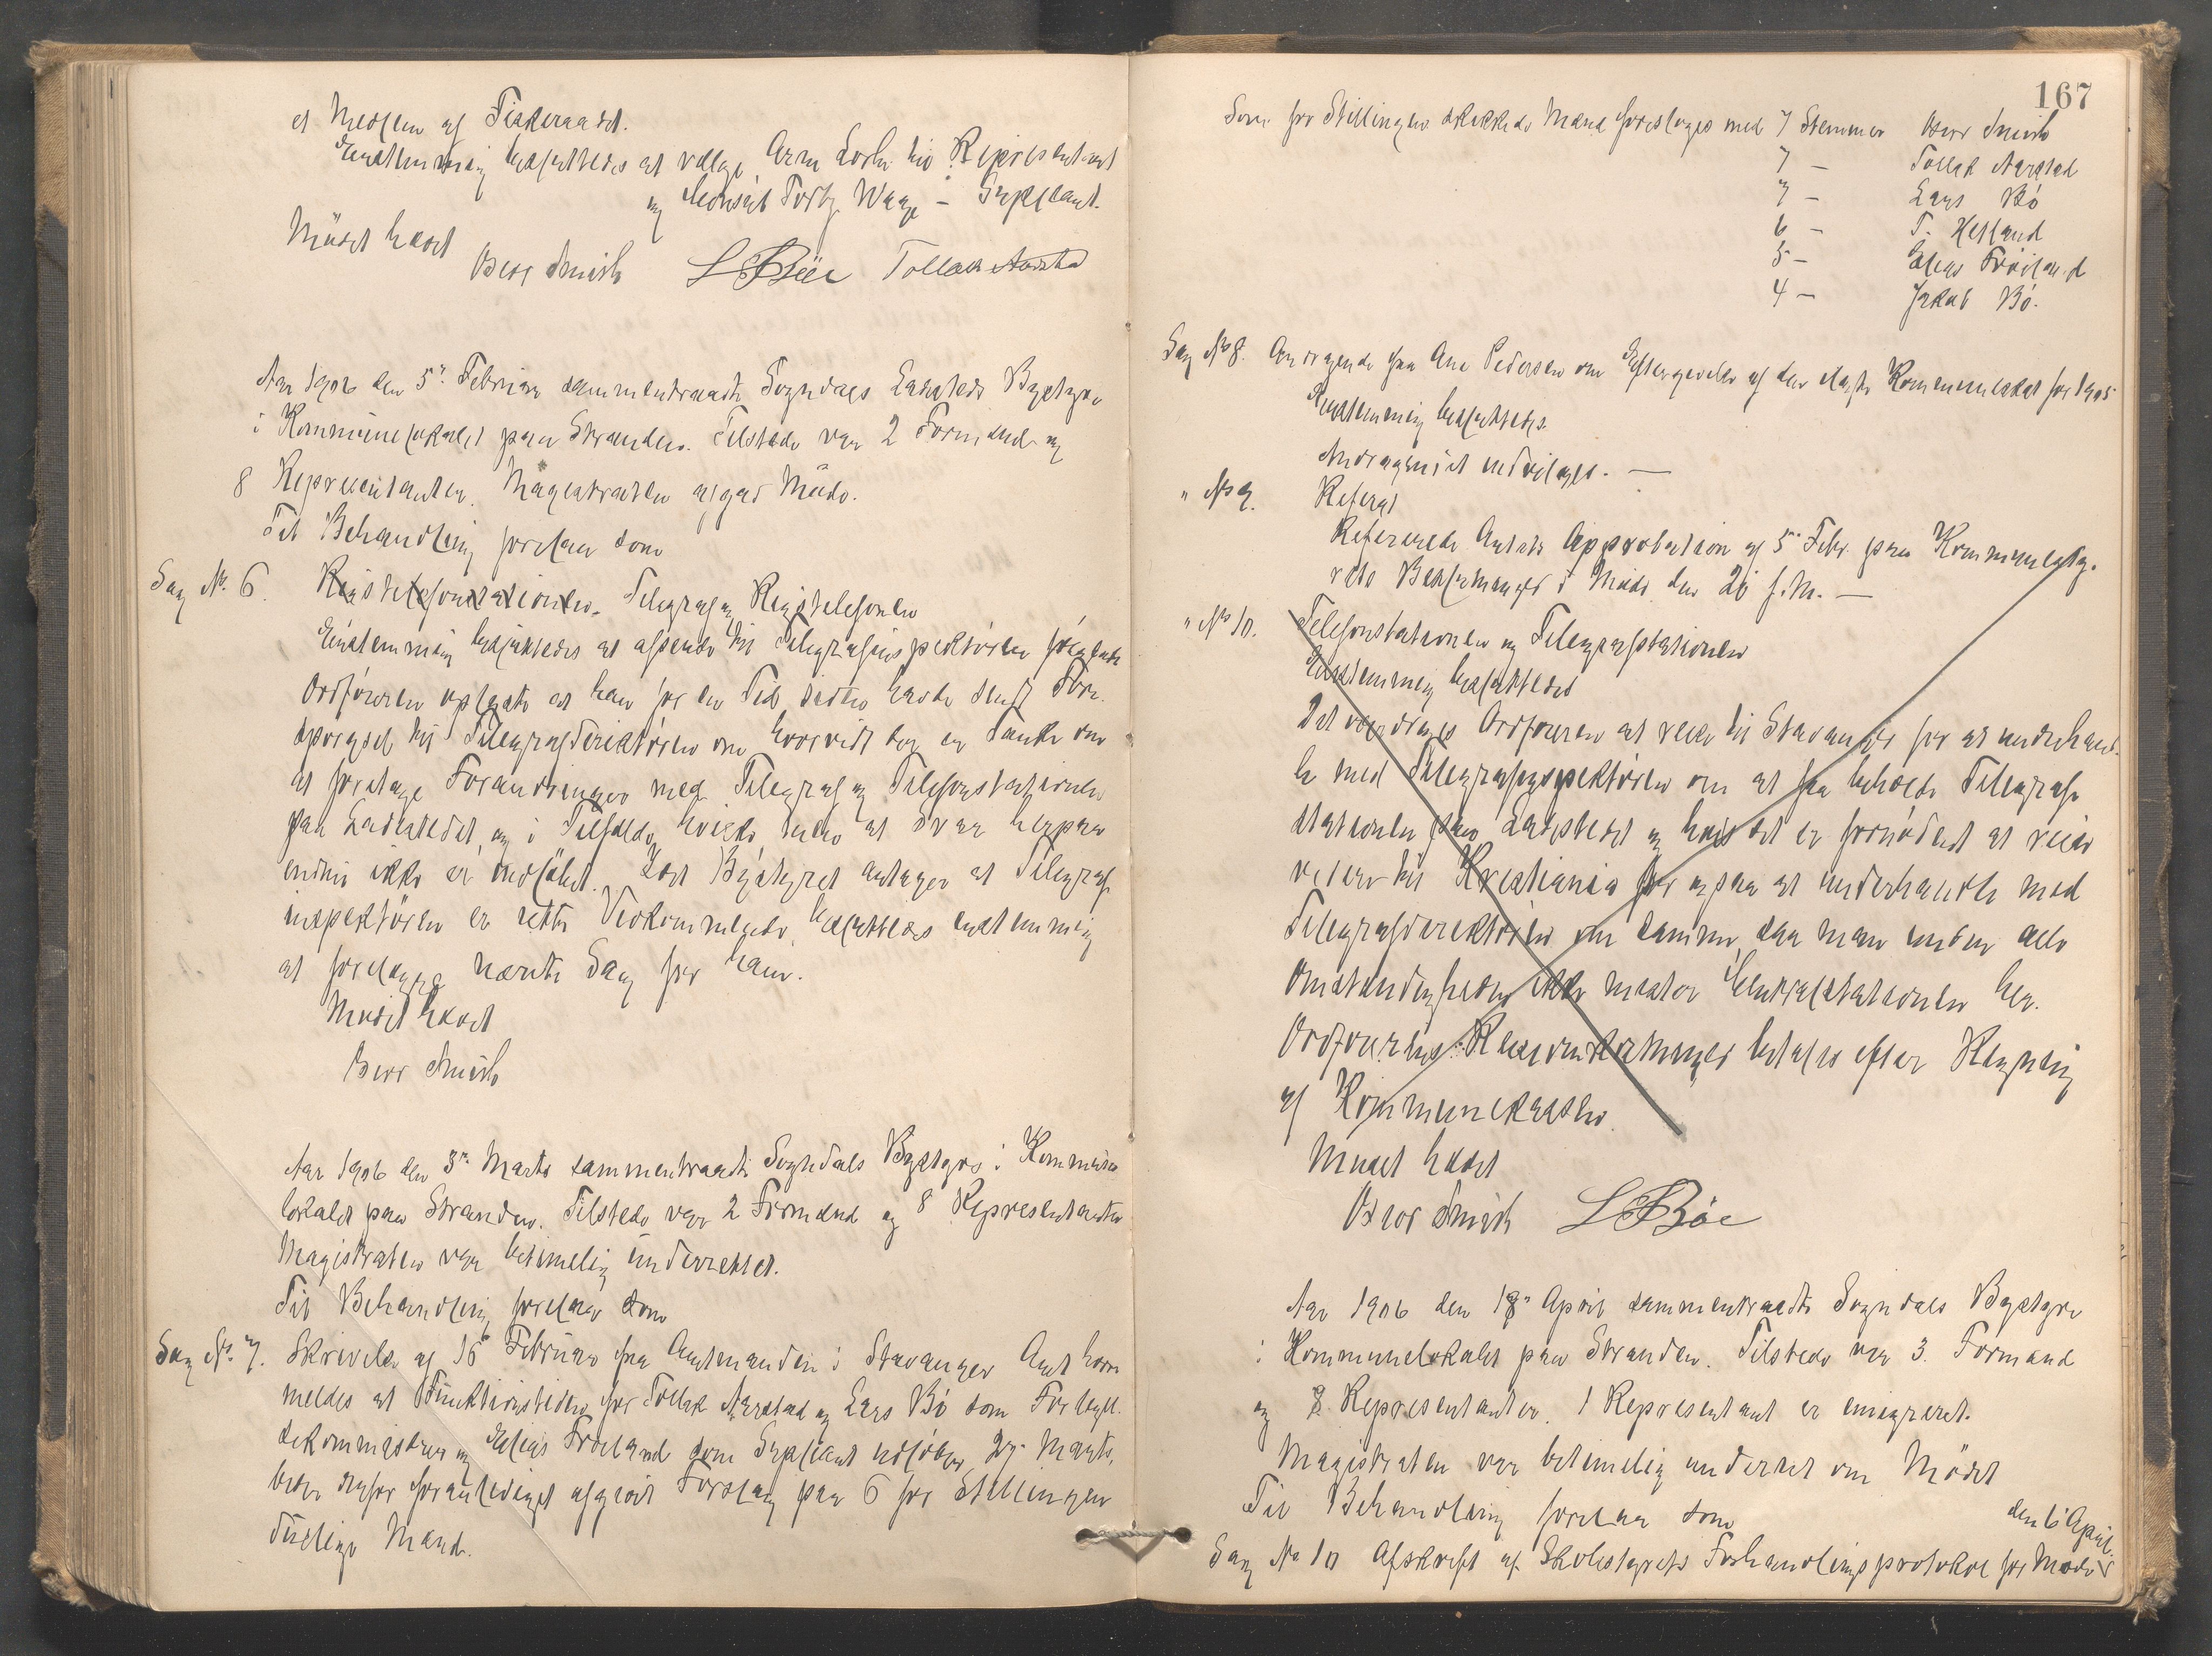 et Medlem af Fiskeraadet.
Enstemmig besluttedes at vælge Arne Losh til Representant
og Konsul Torbj. Waage – Supleant.
Mödet hævet
Berr Smith L Böe Tollak Aarstad
Aar 1906 den 5te Februar sammentraadte Sogndals Ladesteds Bystyre
i Kommunelokalet paa Stranden. Tilstede var 2 Formænd og
8 Representanter. Magistraten afgav Möde.
Til Behandling forelaa som
Sag No. 6. Rigstelefonstationen. Telegraf og Rigstelefonen
Enstemmig besluttedes at afsende til Telegrafinspektören fölgende
Ordföreren oplyste at han for en Tid siden havde sendt Fore-
spörgsel til Telegrafdirektören om hvorvidt der er Tanke om
at foretage Forandringer med Telegraf og Telefonstationen
paa Ladestedet, og i Tilfælde hvilke, uden at svar herpaa
endnu ikke er indlöbet. Da Bystyret antager at Telegraf
inspektören er rette Vedkommende, besluttedes enstemmig
at forelægge nævnte Sag for ham.
Mödet hævet
Berr Smith
Aar 1906 den 3die Marts sammentraadte Sogndals Bystyre i Kommune
lokalet paa Stranden. Tilstede var 2 Formænd og 8 Representanter
Magistraten var betimelig underrettet.
Til Behandling forelaa som
Sag No. 7. Skrivelse af 16 Februar fra Amtmanden i Stavanger Amt hvori
meldes at Funktionstiden for Tollak Aarstad og Lars Bö som Forligel-
seskommisærer og Elias Fröiland som Supleant udlöber 29. Marts,
beder derfor foranlediget afgivet Forslag paa 6 for Stillingen
duelige Mænd.
167
Som for Stillingen skikkede Mænd foresloges med 7 Stemmer Berr Smith
7 – Tollak Aarstad
7 – Lars Bö
6 – T. Hetland
5 – Elias Fröiland
4 – Jakob Bö.
Sag No 8. Andragende fra Ane Pedersen om Eftergivelse af den ilagte Kommuneskat for 1905
Enstemmig besluttedes.
Andragendet indvilges. —
" No 9. Referat
Refererede Amtets Approbation af 5te Febr. paa Kommunesty-
rets Beslutninger i Möde den 26 f.M. —
" No 10. Telefonstationen og Telegrafstationen
Enstemmig besluttedes
Det overdrages Ordföreren at reise til Stavanger for at underhand-
le med Telegrafinspektören om at faa beholde Telegraf
stationen paa Ladestedet og hvis det er fornödent at reise
videre til Kristiania for ogsaa at underhandle med
Telegrafdirektören om samme, saa man under alle
Omstændigheder ikke mister Centralstationen her.
Ordförerens Reiseomkostninger betales efter Regning
af Kommunekassen.
Mödet hævet
Berr Smith L Böe
Aar 1906 den 18de April sammentraadte Sogndals Bystyre
i Kommunelokalet paa Stranden. Tilstede var 3 Formænd
og 8 Representanter. 1 Representant er emigreret.
Magistraten var betimelig underret om Mödet
Til Behandling forelaa som
den 6 April.
Sag No 10 Afskrift af Skolestyrets Forhandlingsprotokol for Möde